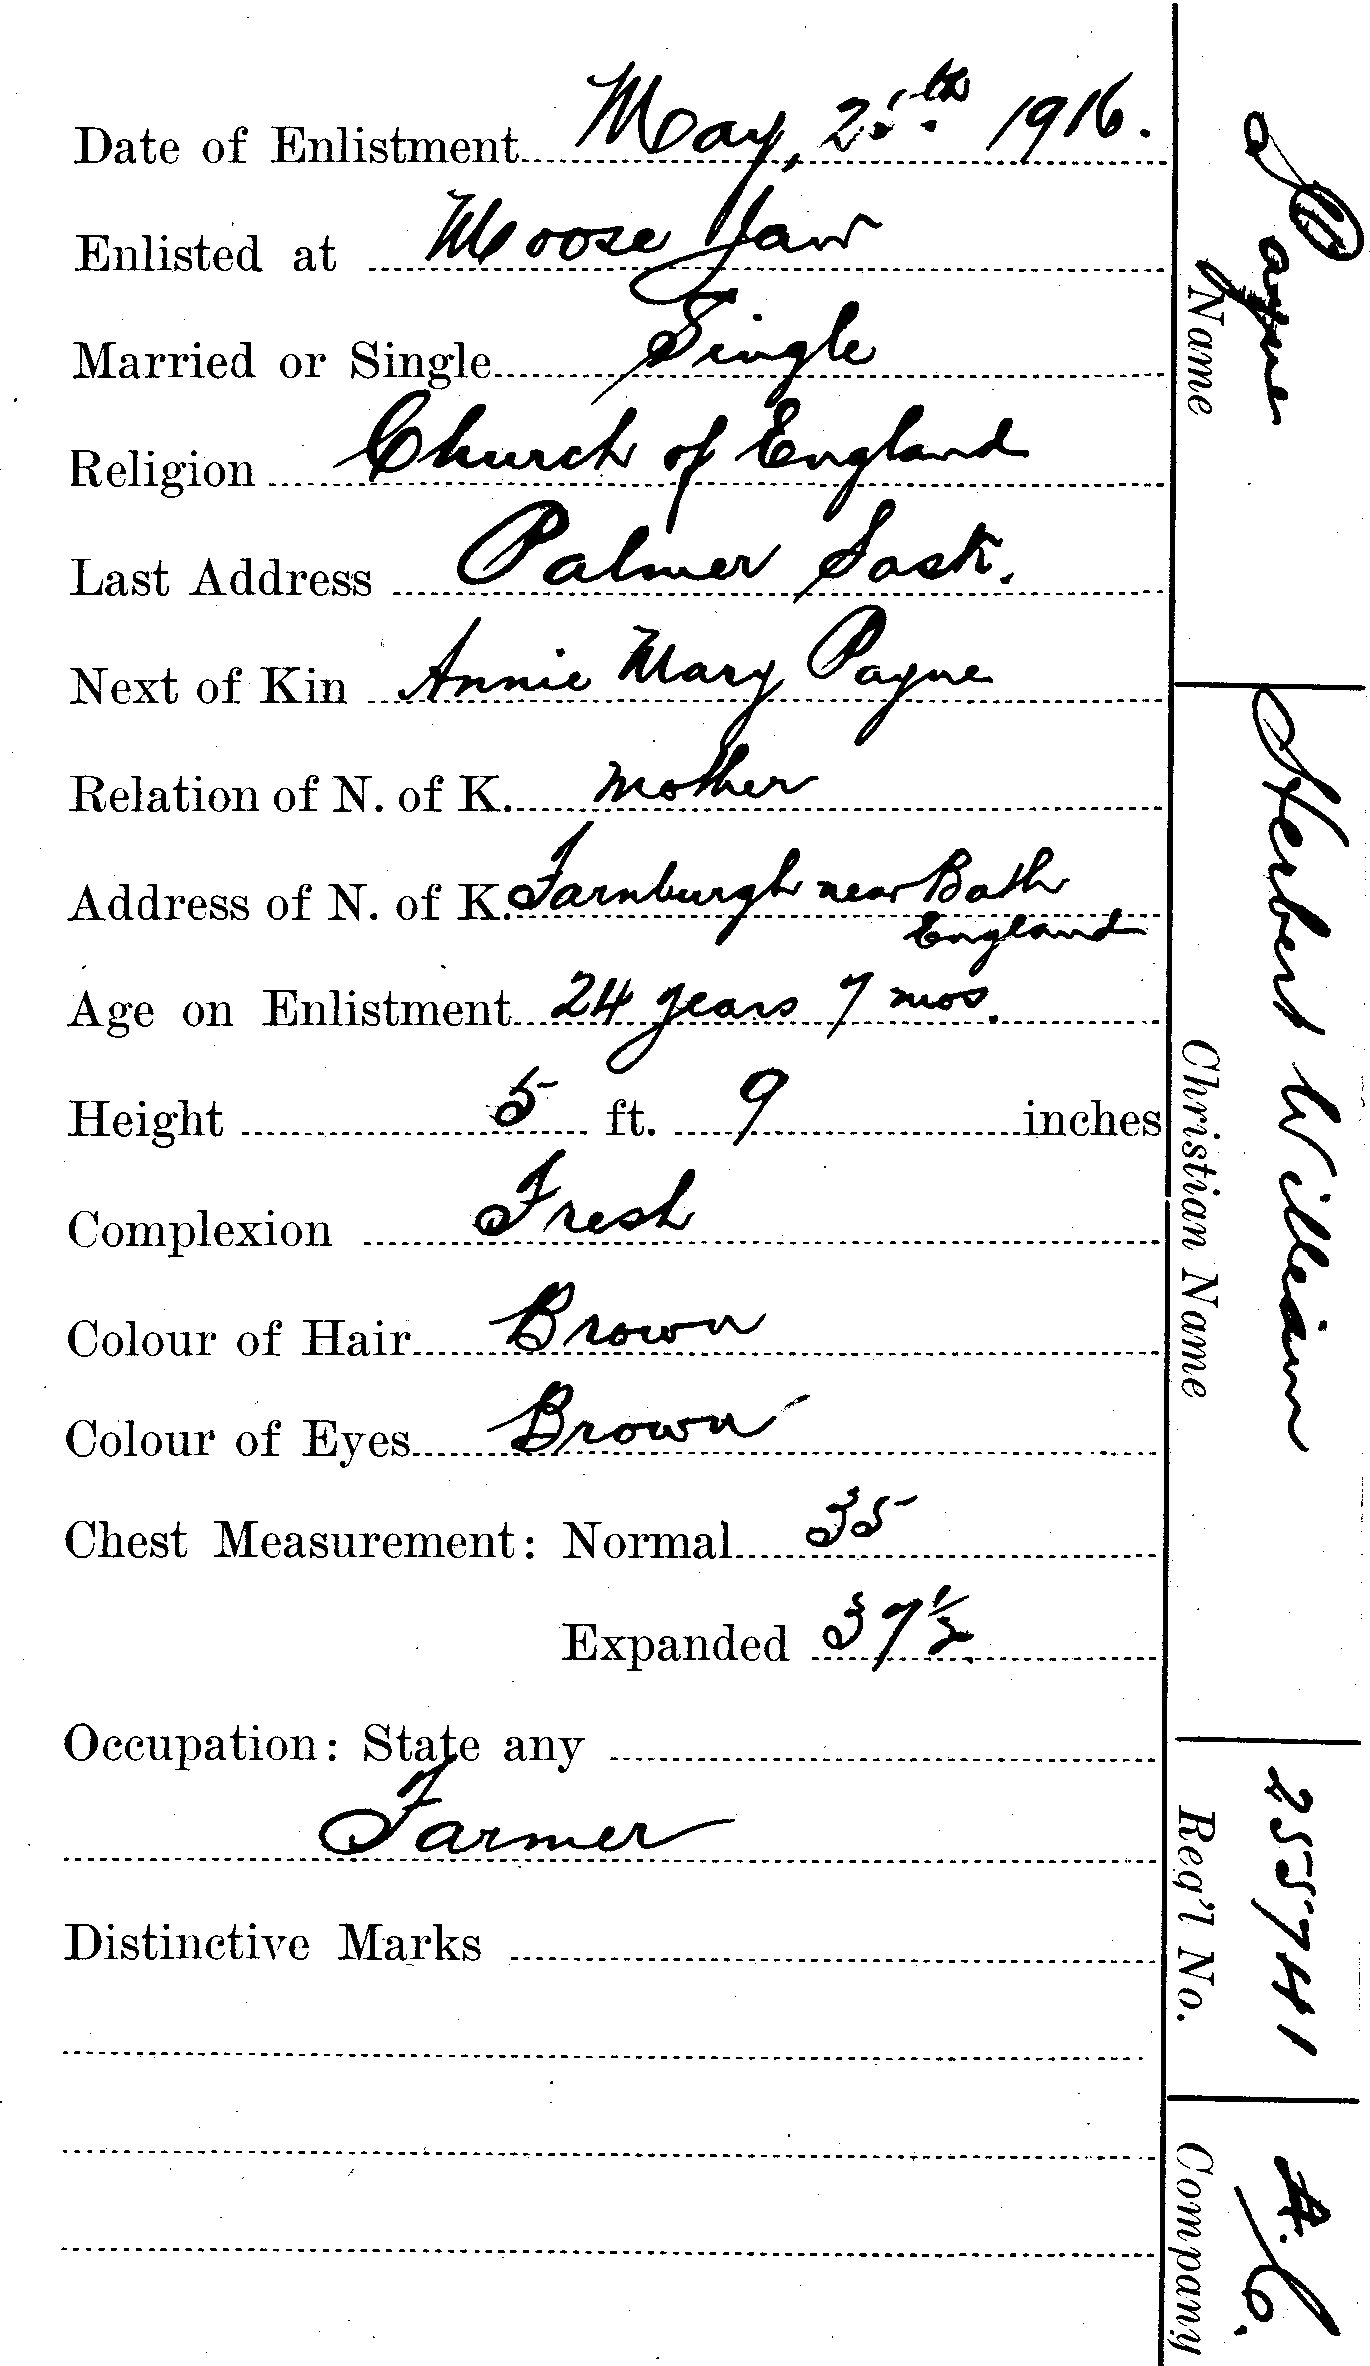 Date of Enlistment May, 25th 1916.
Enlisted at Moose Jaw
Married or Single Single
Religion Church of England
Last Address Palmer Sask.
Next of Kin Annie Mary Payne
Relation of N. of K. mother
Address of N. of K. Farnburgh near Bath
England
Age on Enlistment 24 years 7 mos.
Height 5 ft. 9 inches
Complexion Fresh
Colour of Hair Brown
Colour of Eyes Brown
Chest Measurement: Normal 35
Expanded 37½
Occupation: State any
Farmer
Distinctive Marks
Payne
Name
Herbert William
Christian Name
255741
Reg'l No.
Company